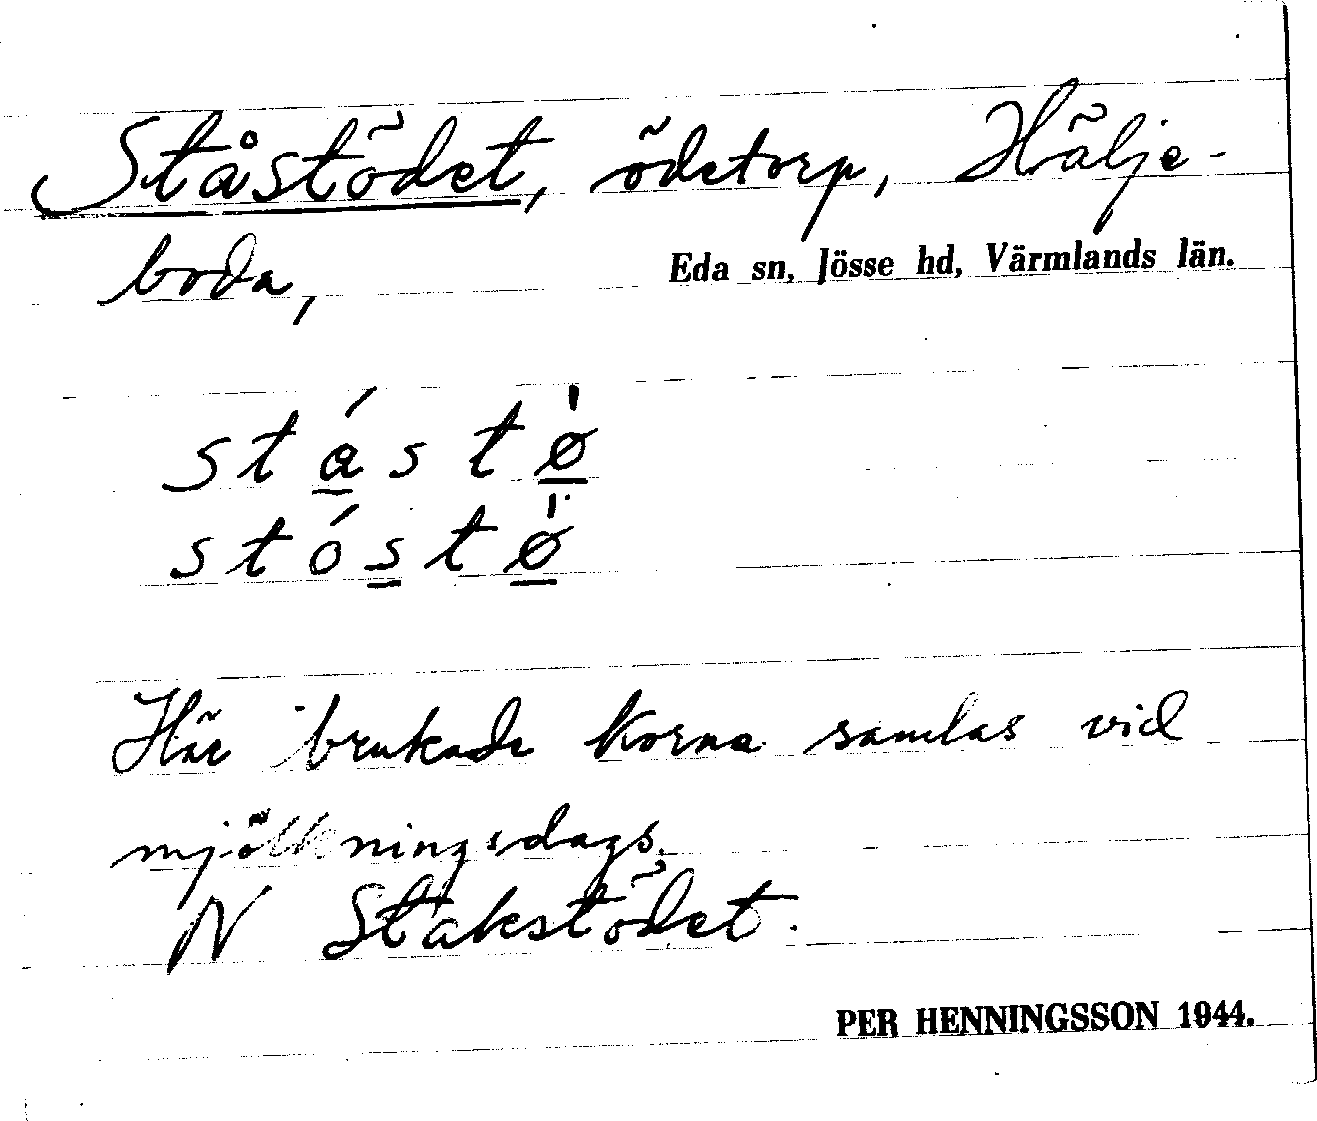 Ståstödet, ödetorp, Hälje-
boda,
Eda sn, Jösse hd, Värmlands län.
stá̱stø̱̍
stós̱tø̱̍
Här brukade korna samlas vid
mjölkningsdags.
N Stakstödet.
PER HENNINGSSON 1944.